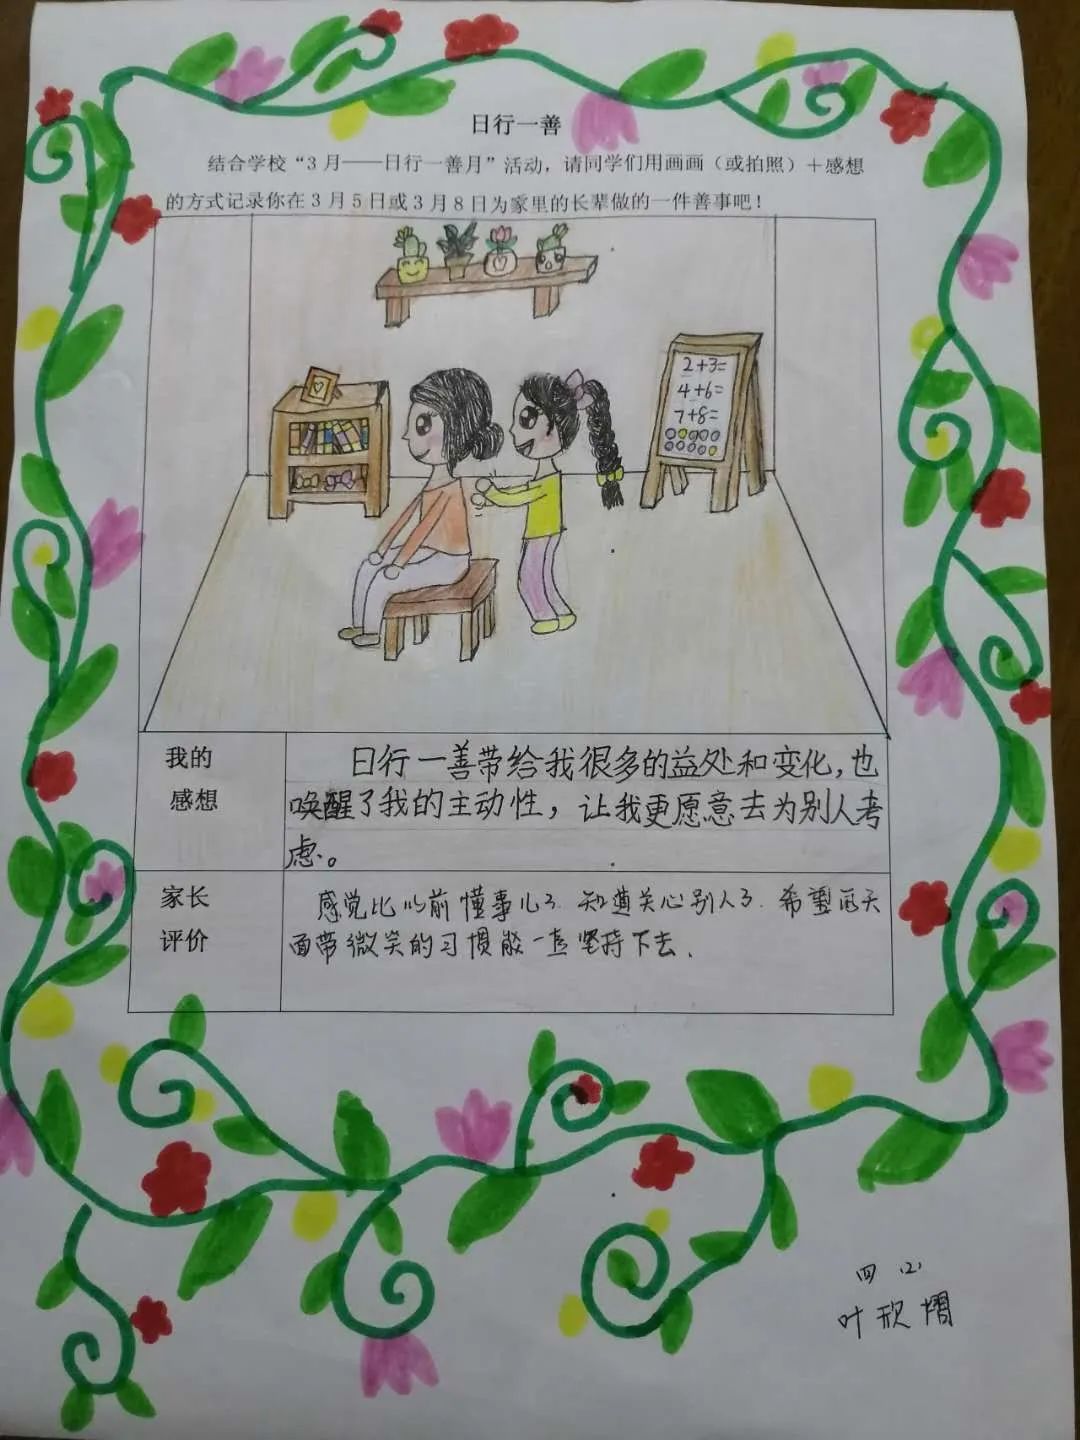 日行一善
结合学校“3月——日行一善月”活动，请同学们用画画（或拍照）＋感想
的方式记录你在3月5日或3月8日为家里的长辈做的一件善事吧！
2+3=
4+6=
7+8=
我的
感想
日行一善带给我很多的益处和变化，也
唤醒了我的主动性，让我更愿意去为别人考
虑。
家长
评价
感觉比以前懂事儿了.知道关心别人了.希望每天
面带微笑的习惯能一直坚持下去.
四(2)
叶